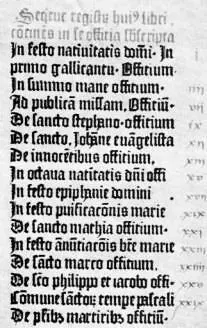 Sequitur registrū huiꝰ libri
cōtinēs in se officia subscripta
In festo natiuitatis dn̄i. In
primo gallicantu. Officium.
In summo mane officium. iiij
Ad publicā missam, Officiū. vij
De sancto stephano. officium
De sancto, Johāne euāgelista
De innocētibus officium,
In octaua natitatis dn̄i offi xv
In festo epiphanie domini
In festo puificaconis marie xix
De sancto mathia officium. xxj
In festo ānūciacōis bt̄e marie xxij
De sancto marco officium, xxiiij
De sc̄o philippo et iacobo offi. xxv
Cōmune sāctoꝝ tempe pascali
De pr̄ibꝫ martiribꝫ officiū.